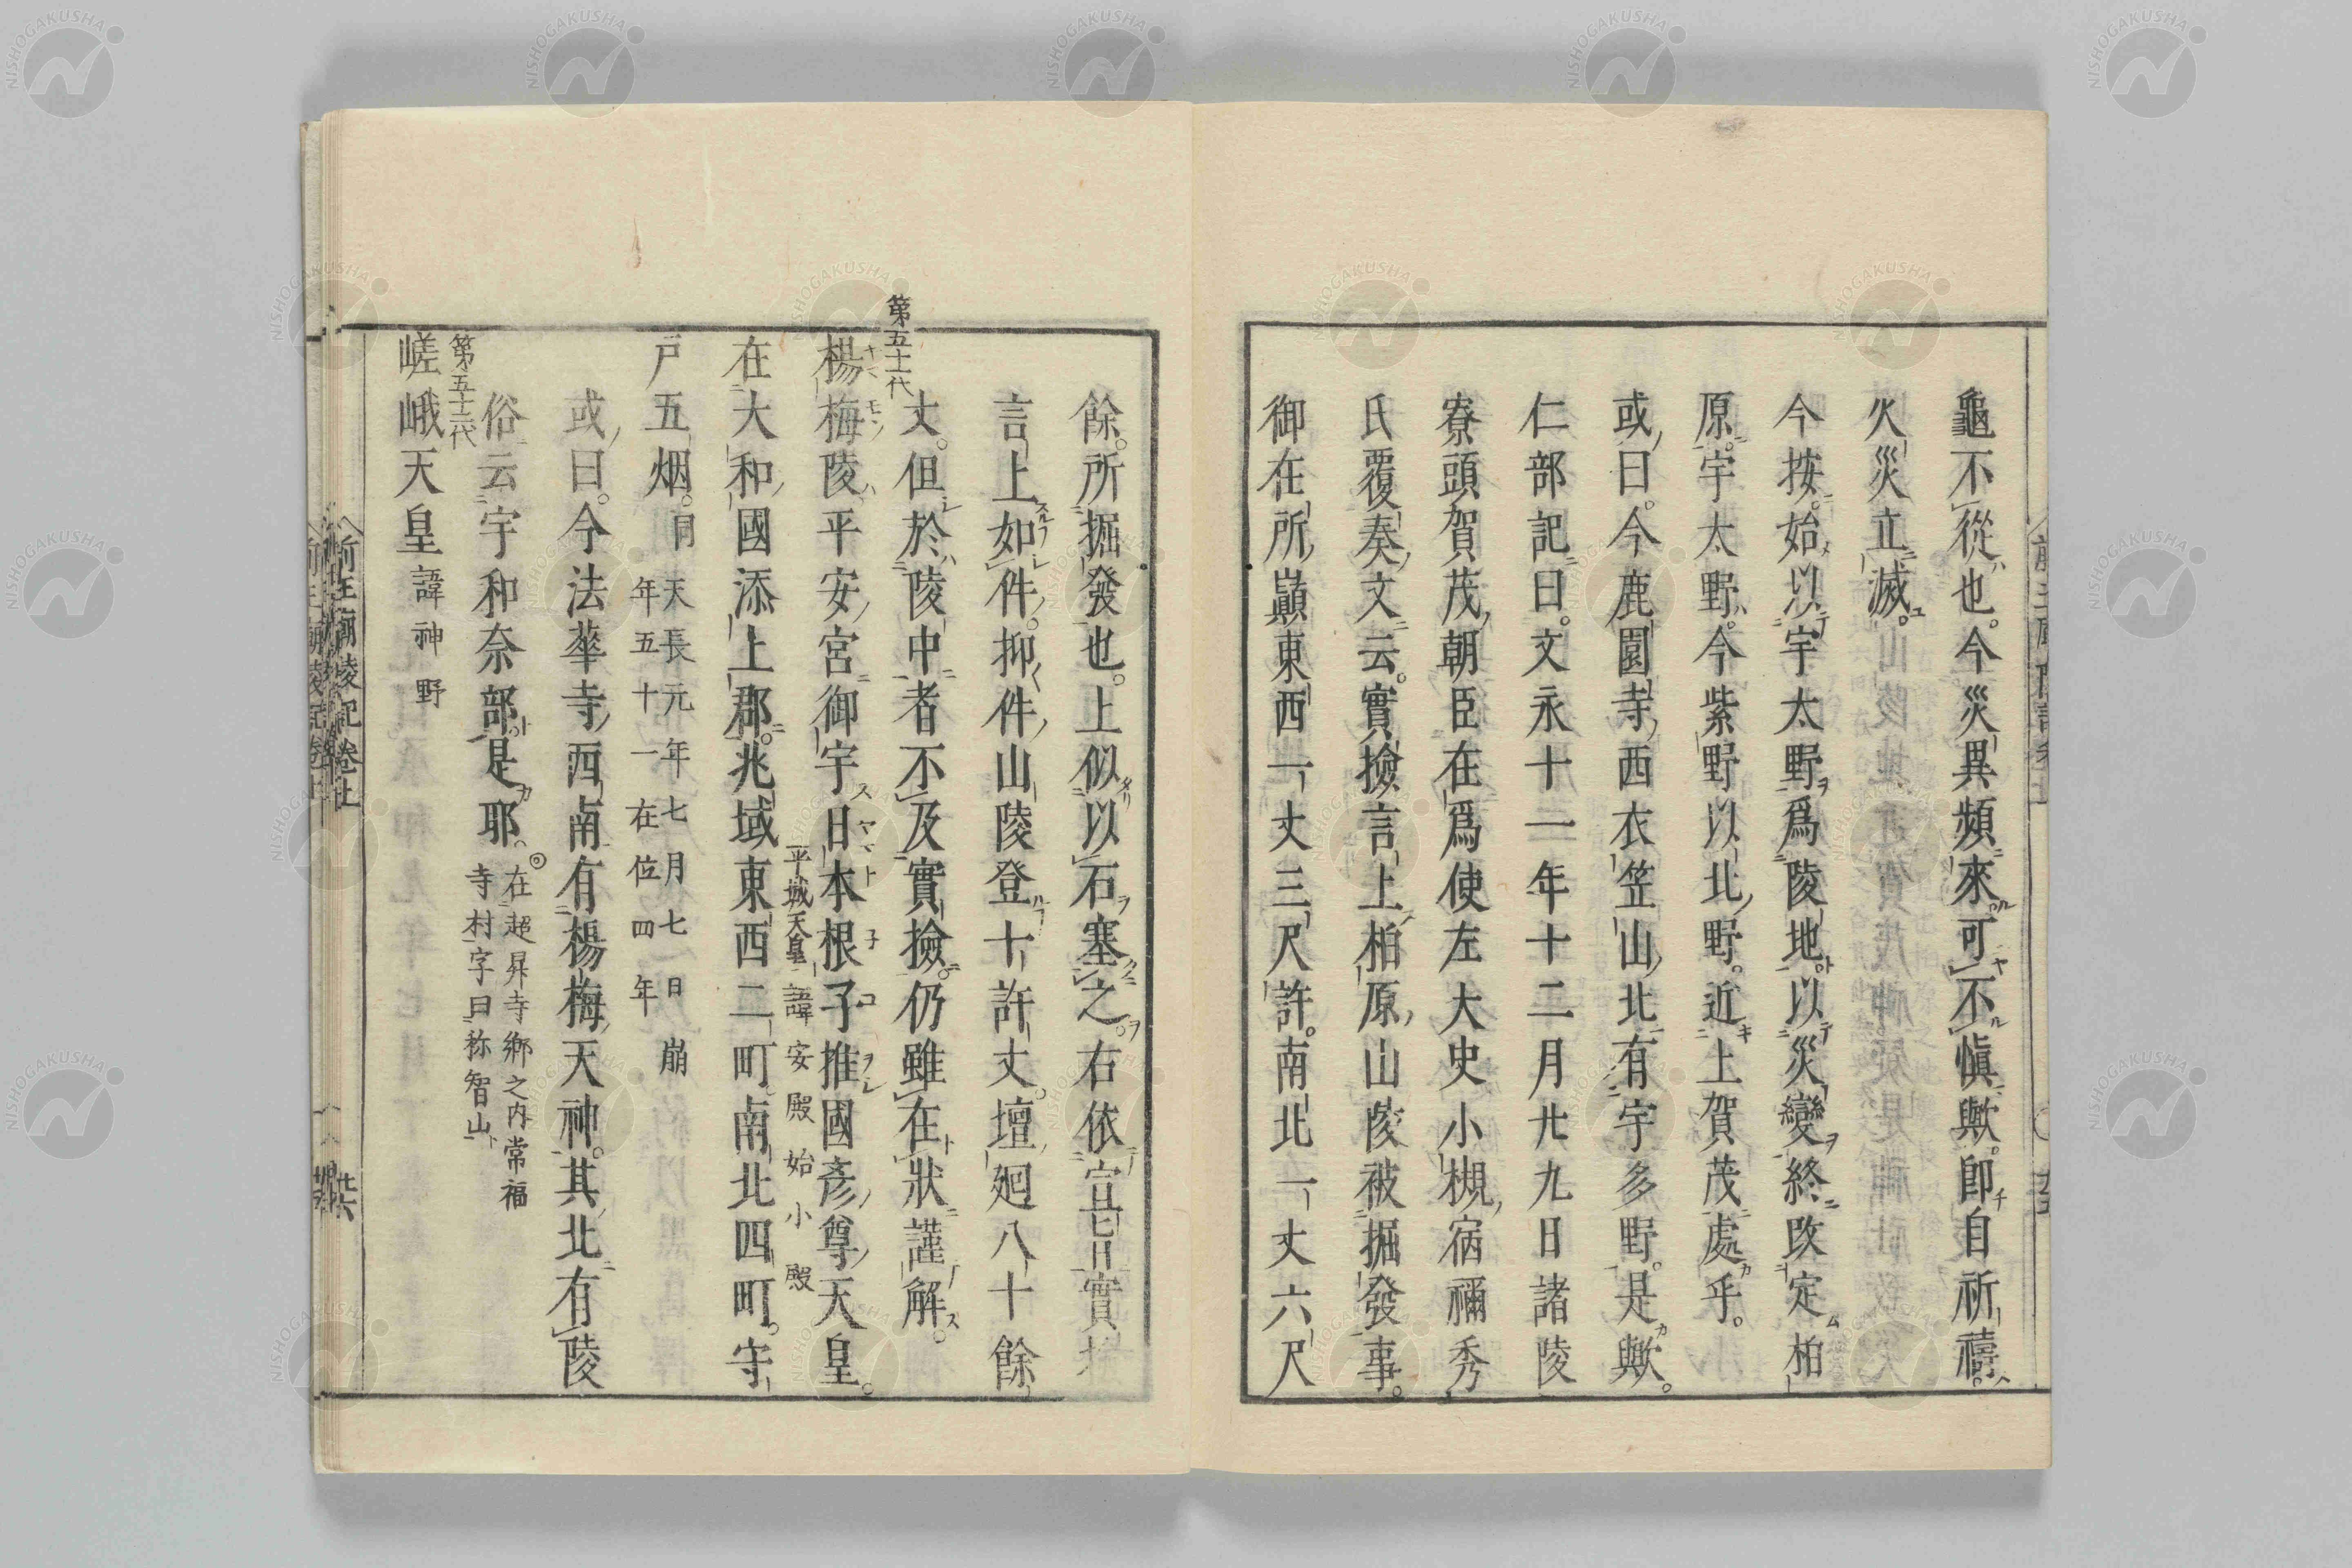 龜不從也。今災異頻來可不愼歟。卽自祈禱。
火災立滅。
今按。始以宇太野爲陵地。以災變終改定柏
原。宇太野。今紫野以北野。近上賀茂處乎。
或曰。今鹿園寺西衣笠山北有宇多野。是歟。
仁部記曰。文永十一年十二月廿九日諸陵
寮頭賀茂朝臣在爲使左大史小槻宿禰秀
氏覆奏文云。實撿言上柏原山陵被掘發事。
御在所巓東西一丈三尺許。南北一丈六尺
餘。所掘發也。上似以石塞之。右依宣旨實
言上如件。抑件山陵登十許丈。壇廻八十餘
丈。但於陵中者不及實撿。仍雖在狀謹解。
第五十一代
楊梅陵平安宮御宇日本根子推國彥尊天皇。
平城天皇諱安殿始小殿
在大和國添上郡。兆域東西二町南北四町。守
戸五烟。同天長元年七月七日崩
年五十一在位四年
或曰。今法華寺西南有楊梅天神。其北有陵
俗云宇和奈部是耶。在超昇寺鄉之内常福
寺村字曰称智山
第五十二代
嵯峨天皇諱神野
前王廟陵記卷上 廿六